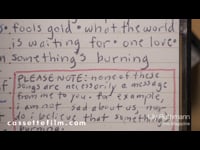 • fools gold • what the world
is waiting for • one love •
something's burning
PLEASE NOTE: none of these
songs are necessarily a message
from me to you. for example,
i am not sad about us, nor
do i believe that something's
burning
cassettefilm.com